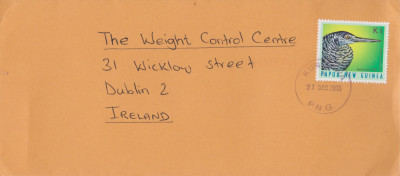 The Weight Control Centre
31 Wicklow Street
Dublin 2
IRELAND
K1
PAPUA NEW GUINEA
P.N.G.